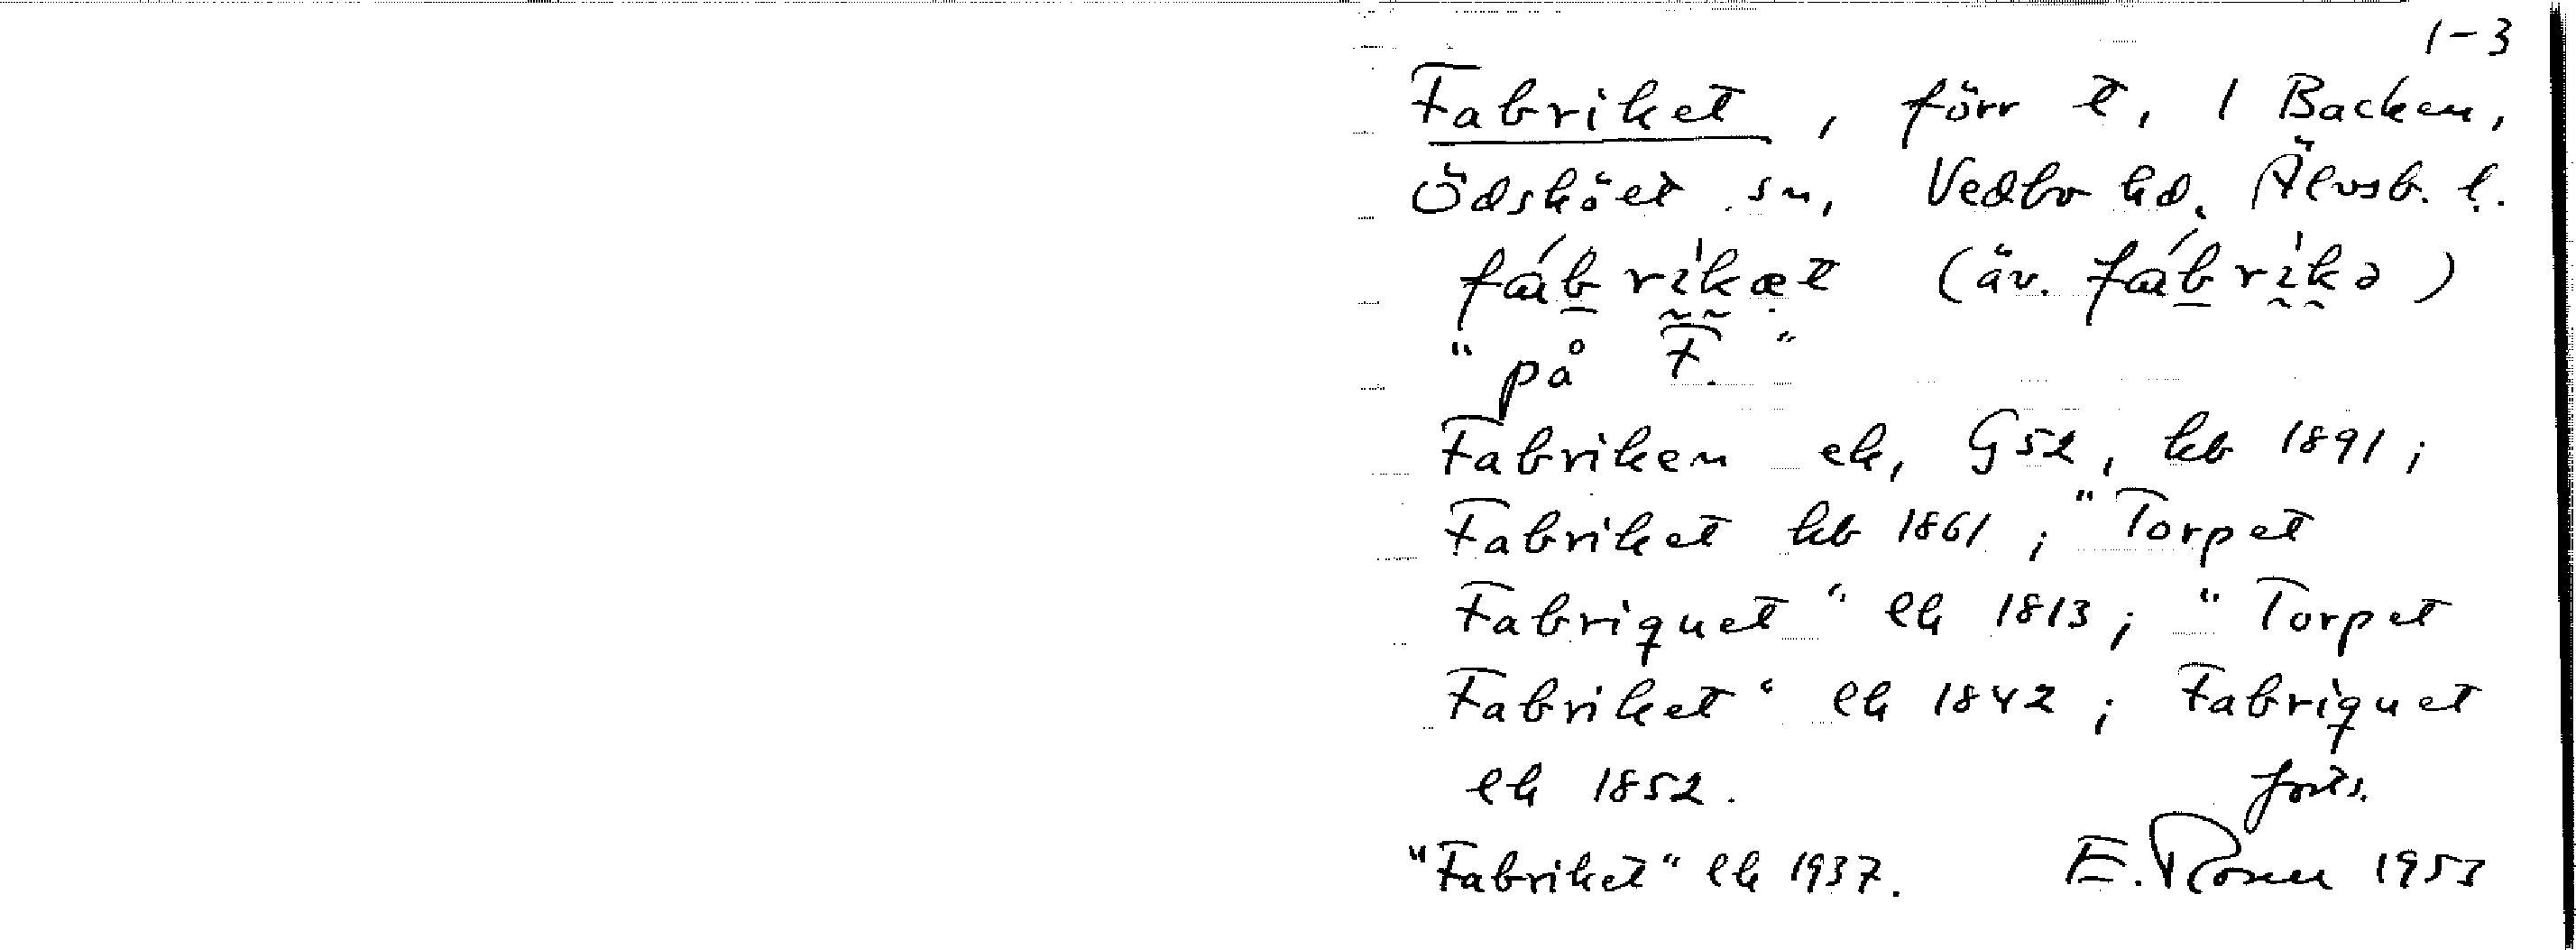 1-3
Fabriket, förr t, 1 Backen,
Ödskölt sn, Vedbo hd, Älvsb. l.
fáb rìkæt (äv. fáb rìkə)
"på F."
Fabriken ek, G52, kb 1891;
Fabriket kb 1861; "Torpet
Fabriquet" lh 1813; "Torpet
Fabriket" lh 1842; Fabriquet
lh 1852. forts.
"Fabriket" lh 1937. E. Rosen 1953